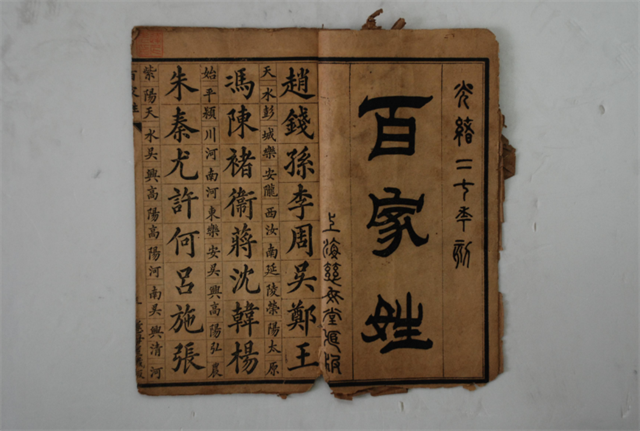 光緒二七年刻
百家姓
上海慈母堂
趙錢孫李周吳鄭王
天水彭城樂安隴西汝南延陵榮陽太原
馮陳褚衞蔣沈韓楊
始平潁川河南河東樂安吳興高陽弘農
朱秦尤許何呂施張
紫陽天水吳興高陽高陽河南吳興清河
百家姓